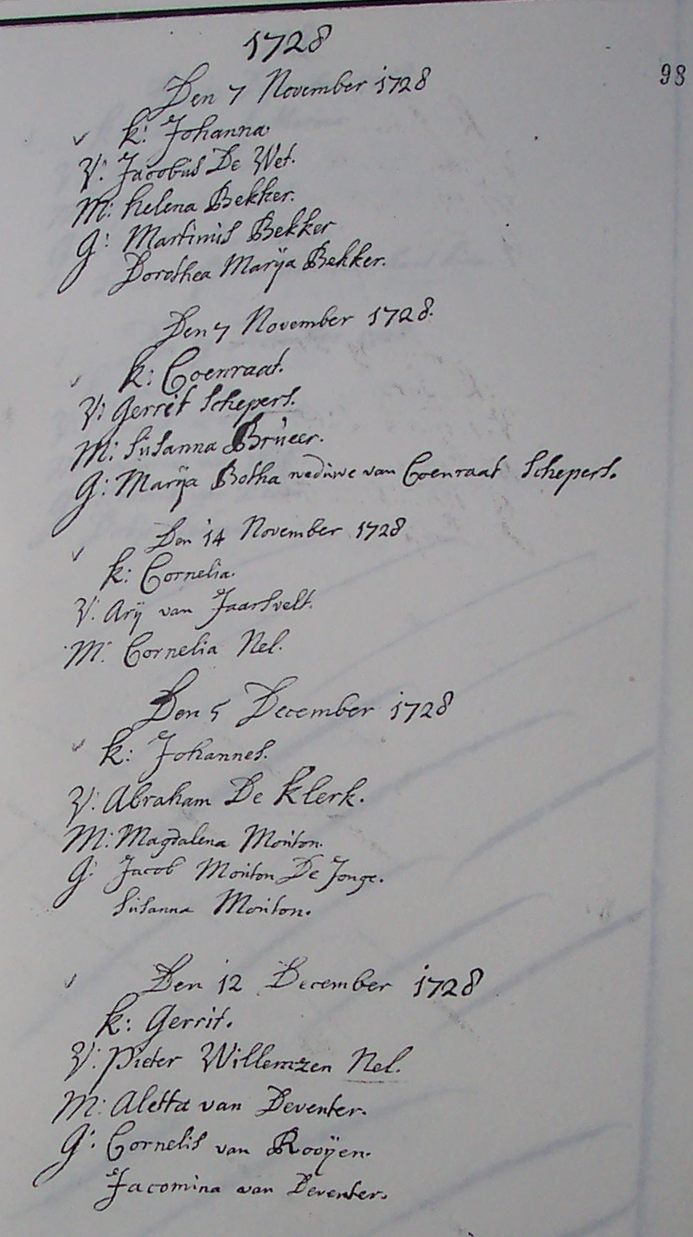 1728
98
Den 7 November 1728
k: Johanna
V: Jacobus De Wet.
M: helena Bekker.
G: Martinus Bekker
Dorothea Marÿa Bekker.
Den 7 November 1728.
k: Coenraat.
V: Gerrit Schepers.
M: Susanna Brüeer.
G: Marÿa Botha weduwe van Coenraat Schepers.
Den 14 November 1728
k: Cornelia.
V: Arÿ van Jaarsvelt.
M: Cornelia Nel.
Den 5 December 1728
k: Johannes.
V: Abraham De Klerk.
M: Magdalena Mouton.
G: Jacob Mouton De Jonge.
Susanna Mouton.
Den 12 December 1728
k: Gerrit.
V: Pieter Willemzen Nel.
M: Aletta van Deventer.
G: Cornelis van Rooÿen.
Jacomina van Deventer.